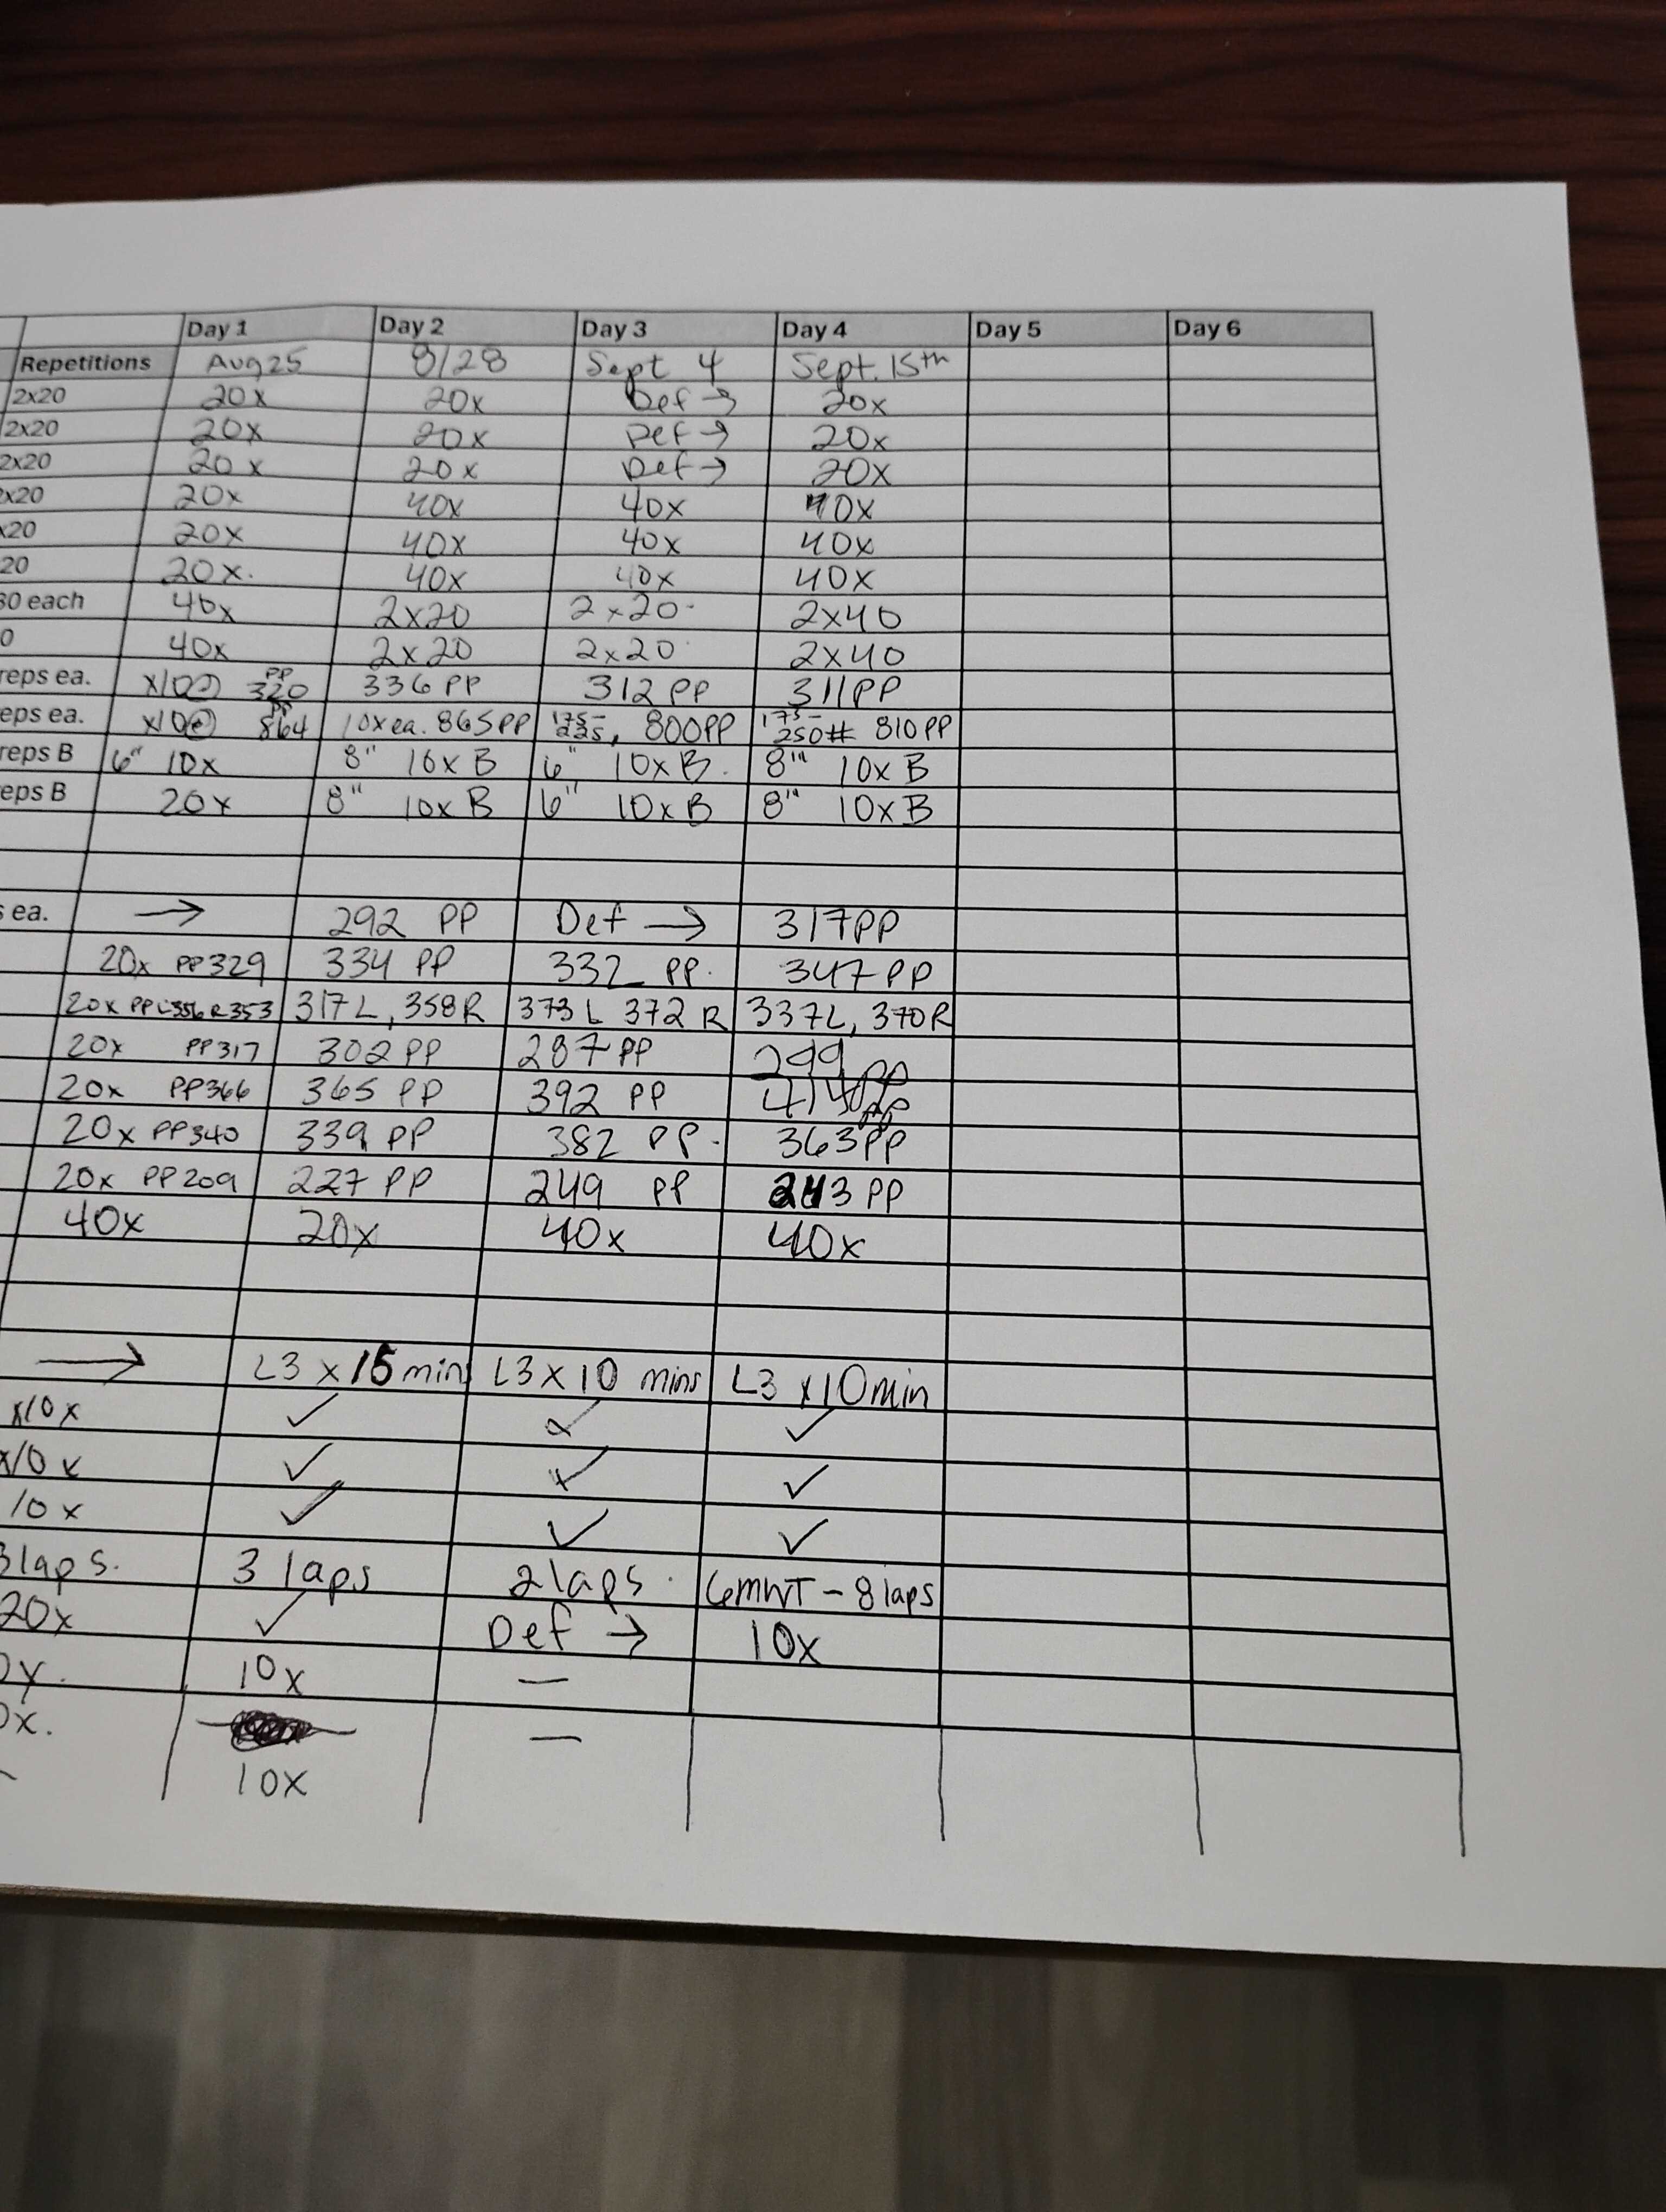 Day 1 Day 2 Day 3 Day 4 Day 5 Day 6
Repetitions Aug 25 8/28 Sept 4 Sept. 15th
2x20 20x 20x Def → 20x
2x20 20x 20x Def → 20x
2x20 20x 20x Def → 20x
x20 20x 40x 40x 40x
x20 20x 40x 40x 40x
20 20x. 40x 40x 40x
30 each 40x 2x20 2x20 2x40
0 40x 2x20 2x20 2x40
reps ea. x10 PP 320 336 PP 312 PP 311PP
eps ea. x10 PP 864 10x ea. 865PP 175-225, 800PP 175-250# 810PP
reps B 6" 10x 8" 10x B 6" 10x B. 8" 10x B
eps B 20x 8" 10x B 6" 10x B 8" 10x B
s ea. → 292 PP Def → 317PP
20x PP329 334 PP 332 PP. 347PP
20x PP L356 R353 317L, 358R 373L 372R 337L, 370R
20x PP317 302PP 287PP 299 PP
20x PP366 365 PP 392 PP
20x PP340 339 PP 382 PP. 363PP
20x PP209 227 PP 249 PP 243 PP
40x 20x 40x 40x
→ L3 x 15 mins L3 x 10 mins L3 x 10min
x10x ✓ ✓ ✓
x10x ✓ ✓ ✓
10x ✓ ✓ ✓
3laps. 3 laps 2laps. 6MWT - 8 laps
20x ✓ Def → 10x
0x. 10x —
0x. —
10x